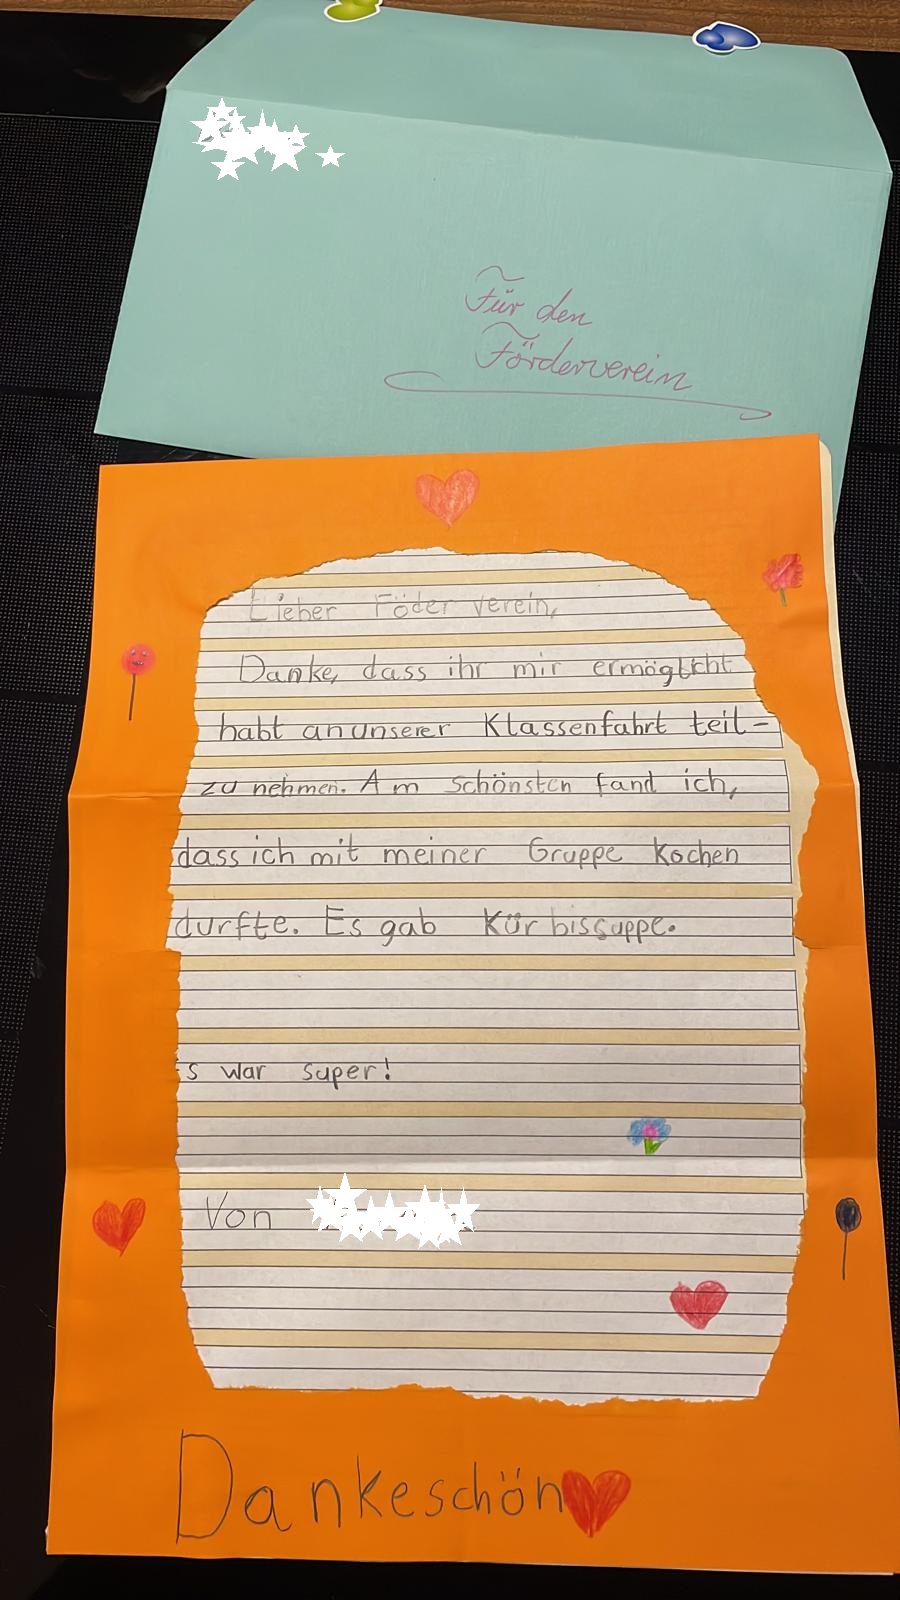 Für den
Förderverein
Lieber Föder verein,
Danke, dass ihr mir ermöglicht
habt an unserer Klassenfahrt teil-
zu nehmen. Am schönsten fand ich,
dass ich mit meiner Gruppe Kochen
durfte. Es gab Kürbissuppe.
Es war super!
Von
Dankeschön